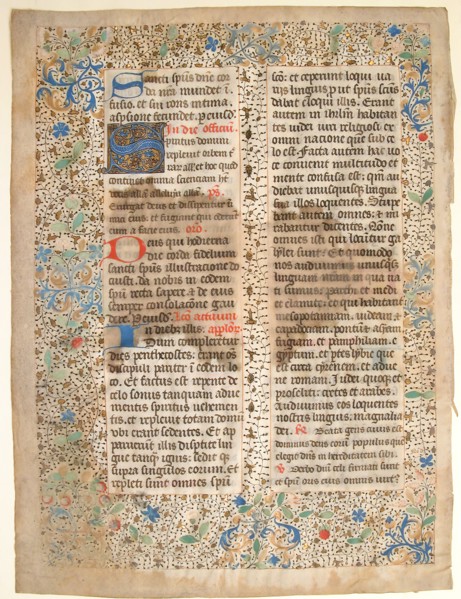 Sancti spūs dñe cor
da nr̄a mundet ī
fusio. et sui roris intima
aspersione fecundet. Per eiusdē.
In die officiū
Spiritus domini
repleuit orbem t̄
rarū allet hoc quod
continet omnia scienciam ht̄
uocis all'a all'a. ps.
Exurgat deus et dissipentur
mici eius. et fugiunt qui oderūt
eum a facie eius. oro.
Deus qui hodierna
die corda fidelium
sancti spūs illustracione do
cuisti. da nobis in eodem
spū recta sapere. et de eius
semper consolacione gau
dere. P eiusd. Leō actuum
In diebus illis: aplōr
Dum complerētur
dies penthecostes: erāt oēs
discipuli pariter ī eodem lo
co. Et factus est repente de
celo sonus tanquam adue
nientis spiritus uehemen
tis. et repleuit totam domū
vbi erant sedentes. Et ap
paruerūt illis dispertite lin
gue tanq̄ ignis: sedit q̄
supra singulos eorum. Et
repleti sunt omnes spū
scō: et ceperunt loqui ua
rijs linguis. put spūs scūs
dabat eloqui illis. Erant
autem in ihrlm̄ habitan
tes iudei viri religiosi ex
omni nacione que sub ce
lo est. Facta autem hac vo
ce conuenit multitudo et
mente confusa est: qm̄ au
diebat unusquisq; lingua
sua illos loquentes. Stupe
bant autem omnes: et mi
rabantur dicentes. Nōne
omnes isti qui locūtur ga
lylei sunt? Et quomodo
nos audiuimus unusq̄s
linguam nr̄am in qua na
ti sumus? Parthi. et medi.
et elamite. et qui habitant
mesopotamiam. iudeam. et
capadociam. pontū. et asyam
frigiam. et pamphiliam. e
gyptum. et ptes lybie que
est circa cyrenem. et adue
ne romani. Judei quoq; et
proseliti: cretes et arabes.
audiuimus eos loquentes
nostris linguis. magnalia
dei. R̄ Beata gens cuius est
dominus deus eorū. populus que
elegit dñs in hereditatem sibi.
V̄ Verbo dnī celi firmati sunt
et spū oris eius omnis uirt?